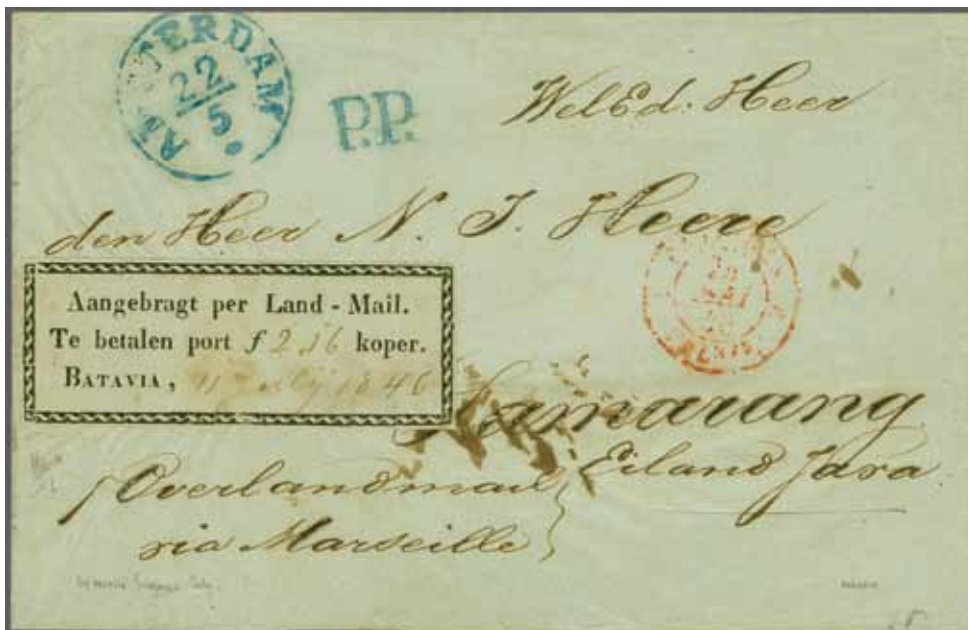 AMSTERDAM
22/5
P.P.
WelEd: Heer
den Heer N. J. Heere
Aangebragt per Land-Mail.
Te betalen port f 2,16 koper.
BATAVIA, 11 July 1846
Samarang
Eiland Java
p Overlandmail
via Marseille